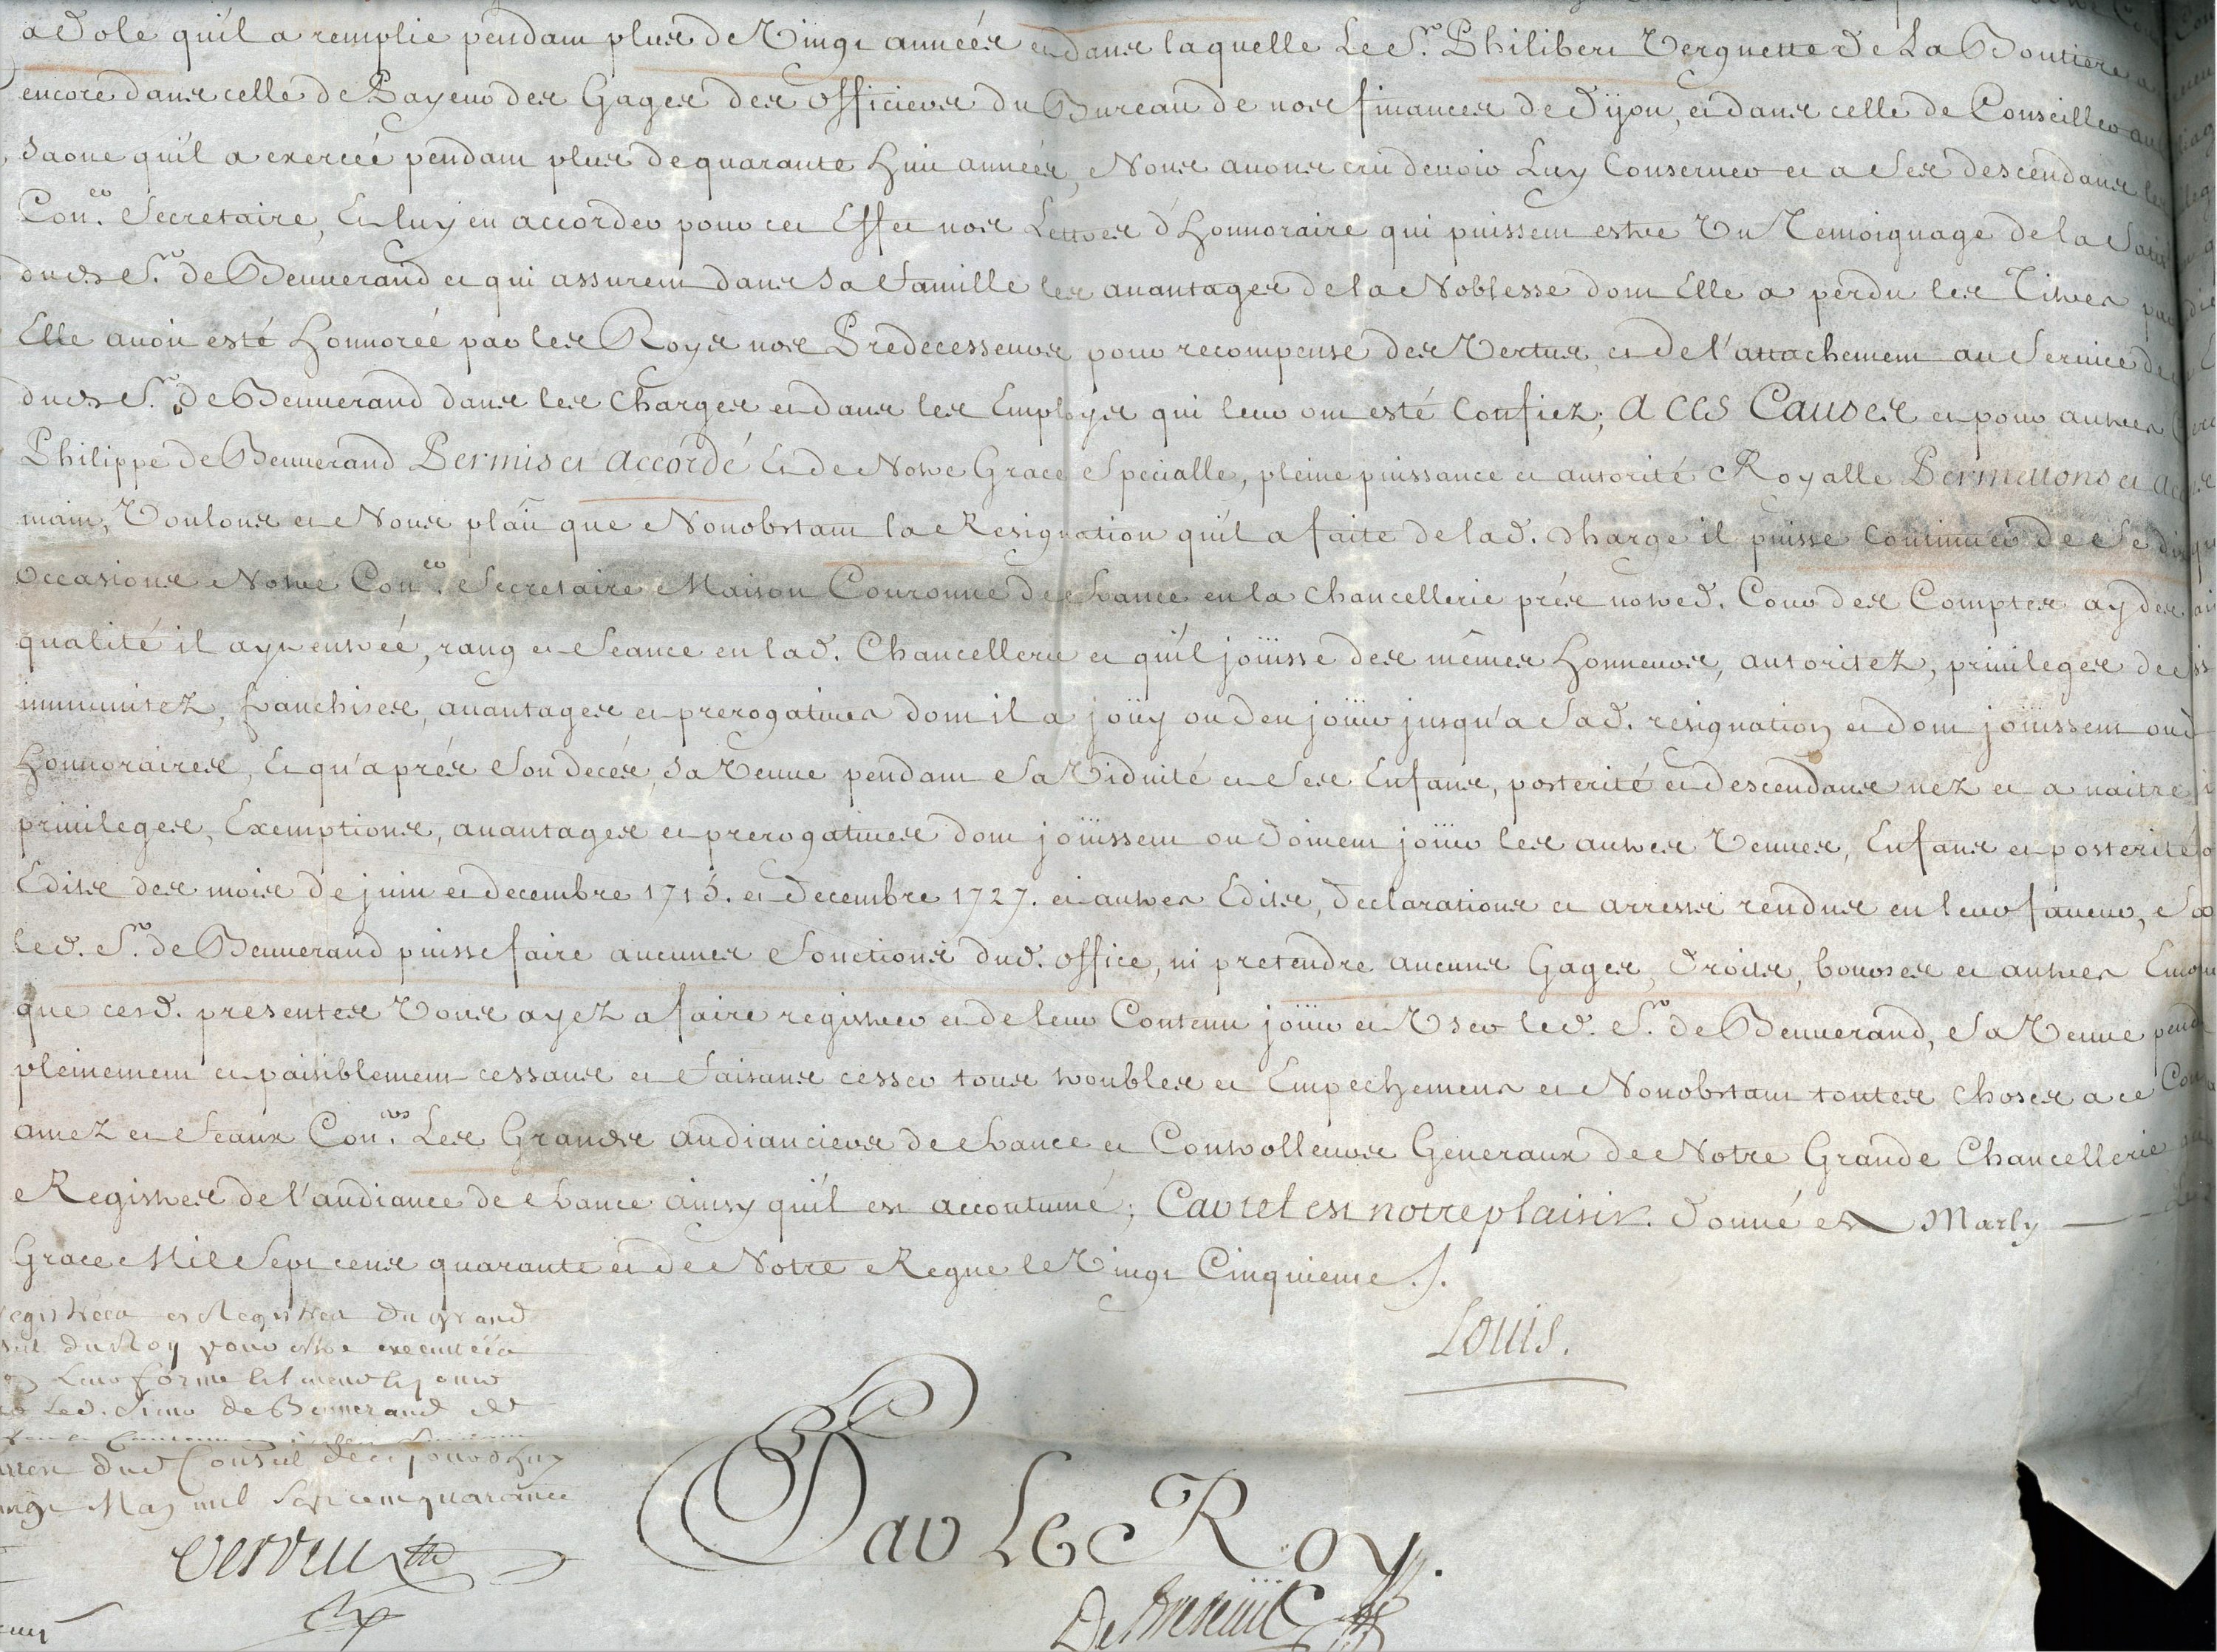 a Dole qu'il a remplie pendant plus de Vingt années et dans laquelle Le Sr. Philibert Vergnette de La Boutiere a
encore dans celle de Payeur des Gages des officiers du Bureau de nos finances de Dijon, et dans celle de Conseiller au
Saone qu'il a exercée pendant plus de quarante huit années, Nous avons cru devoir Luy Conserver et a Ses descendans les
Coner. Secretaire, Et luy en accorder pour cet Effet nos Lettres d'Honnoraire qui puissent estre Un Temoignage de la
dud. Sr. de Benuerand et qui assurent dans Sa famille les auantages de la Noblesse dont Elle a perdu les Titres par
Elle auoit esté Honnorée par les Roys nos Predecesseurs pour recompense des Vertus, et de l'attachement au Seruice de
dud. Sr. de Benuerand dans les Charges et dans les Employs qui leur ont esté Confiez; A CES Causes et pour autres
Philippe de Benuerand Permis et accordé Et de Notre Grace Specialle, pleine puissance et autorité Royalle Permettons et
main, Voulons et Nous plait que Nonobstant la Resignation qu'il a faite de lad. charge il puisse Continuer de Se dire
occasions Notre Coner. Secretaire Maison Couronne de france en la Chancellerie prés notred. Cour des Comptes aydes
qualité il ayt entrée, rang et Seance en lad. Chancellerie et qu'il joüisse des mêmes Honneurs, autoritez, priuileges
immunitez, franchises, auantages et prerogatiues dont il a joüy ou deu joüir jusqu'a Sad. resignation et dont joüissent ou
Honnoraires, Et qu'aprés Son decés, Sa Veuue pendant Sa Viduité et Ses Enfans, posterité et descendans nez et a naitre
priuileges, Exemptions, auantages et prerogatiues dont joüissent ou doiuent joüir les autres Veuues, Enfans et posterité
Edits des mois de juin et decembre 1715. et decembre 1727. et autres Edits, declarations et arrests rendus en leur faueur, Sa
led. Sr. de Benuerand puisse faire aucunes Fonctions dud. office, ni pretendre aucuns Gages, droits, bourses et autres
que cesd. presentes Vous ayez a faire registrer et de leur Contenu joüir et User led. Sr. de Benuerand, Sa Veuue pend
pleinement et paisiblement cessans et faisans cesser tous troubles et Empechemens et Nonobstant toutes Choses a ce Con
amez et feaux Coners. Les Grands audianciers de france et Controlleurs Generaux de Notre Grande Chancellerie
Registres de l'audiance de france ainsy qu'il est accoutumé; Car tel est notre plaisir. Donné a Marly
Grace Mil Sept cens quarante et de Notre Regne le Vingt Cinquieme ./.
Louis.
Registrées es Registres du Grand
du Roy pour estre executées
Leur forme et teneur et jouir
Led. Sieur de Benuerand
dud. Conseil de ce jourdhuy
May mil Sept cent quarante
Verduc
Par Le Roy.
De Breteuil